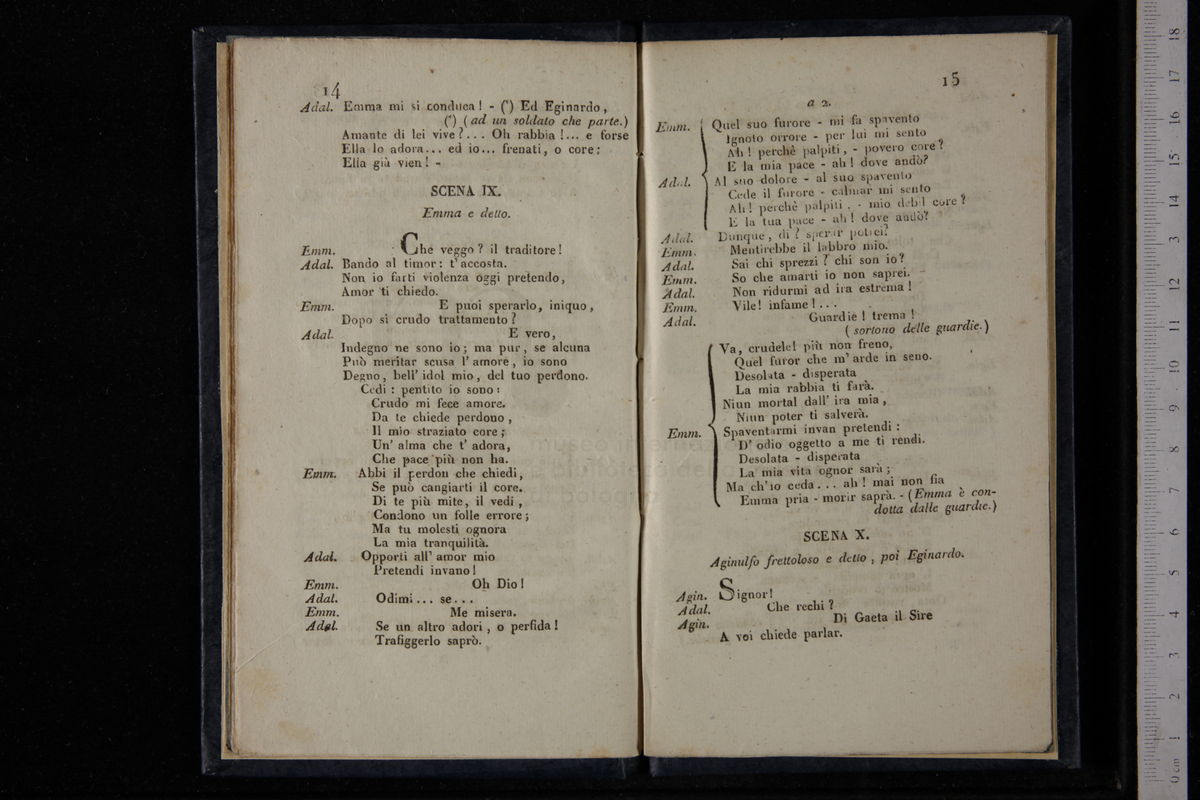 14
Adal. Emma mi si conduca! - (*) Ed Eginardo,
(*) (ad un soldato che parte.)
Amante di lei vive?... Oh rabbia!... e forse
Ella lo adora... ed io... frenati, o core;
Ella già vien! -
SCENA IX.
Emma e detto.
Emm. Che veggo? il traditore!
Adal. Bando al timor: t'accosta.
Non io farti violenza oggi pretendo,
Amor ti chiedo.
Emm. E puoi sperarlo, iniquo,
Dopo sì crudo trattamento?
Adal. E vero,
Indegno ne sono io; ma pur, se alcuna
Può meritar scusa l'amore, io sono
Degno, bell' idol mio, del tuo perdono.
Cedi: pentito io sono:
Crudo mi fece amore.
Da te chiede perdono,
Il mio straziato core;
Un' alma che t' adora,
Che pace più non ha.
Emm. Abbi il perdon che chiedi,
Se può cangiarti il core.
Di te più mite, il vedi,
Condono un folle errore;
Ma tu molesti ognora
La mia tranquilità.
Adal. Opporti all' amor mio
Pretendi invano!
Emm. Oh Dio!
Adal. Odimi... se...
Emm. Me misera.
Adal. Se un altro adori, o perfida!
Trafiggerlo saprò.
15
a 2.
Emm. Quel suo furore - mi fa spavento
Ignoto orrore - per lui mi sento
Ah! perchè palpiti, - povero core?
E la mia pace - ah! dove andò?
Adal. Al suo dolore - al suo spavento
Cede il furore - calmar mi sento
Ah! perchè palpiti, - mio debil core?
E la tua pace - ah! dove andò?
Adal. Dunque, di? sperar potrei?
Emm. Mentirebbe il labbro mio.
Adal. Sai chi sprezzi? chi son io?
Emm. So che amarti io non saprei.
Adal. Non ridurmi ad ira estrema!
Emm. Vile! infame!...
Adal. Guardie! trema!
(sortono delle guardie.)
Va, crudele! più non freno,
Quel furor che m' arde in seno.
Desolata - disperata
La mia rabbia ti farà.
Niun mortal dall' ira mia,
Niun poter ti salverà.
Emm. Spaventarmi invan pretendi:
D' odio oggetto a me ti rendi.
Desolata - disperata
La mia vita ognor sarà;
Ma ch'io ceda... ah! mai non fia
Emma pria - morir saprà. - (Emma è con-
dotta dalle guardie.)
SCENA X.
Aginulfo frettoloso e detto, poi Eginardo.
Agin. Signor!
Adal. Che rechi?
Agin. Di Gaeta il Sire
A voi chiede parlar.